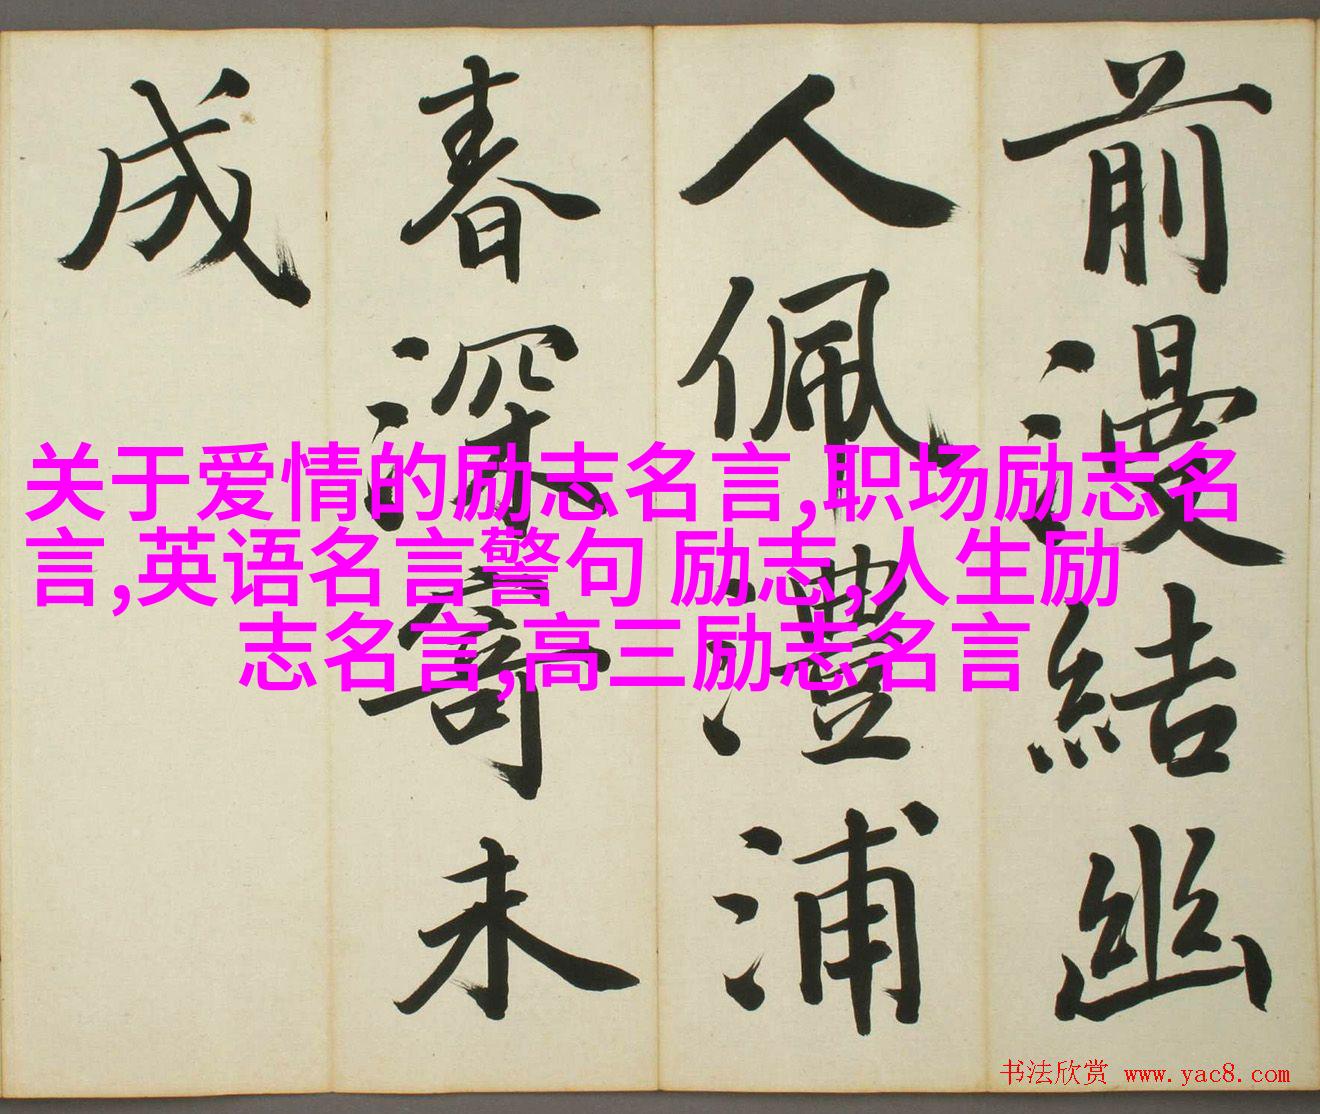 前漫結幽
人佩澧浦
春深寄未
成
关于爱情的励志名言,职场励志名
言,英语名言警句 励志,人生励
志名言,高三励志名言
书法欣赏 www.yac8.com